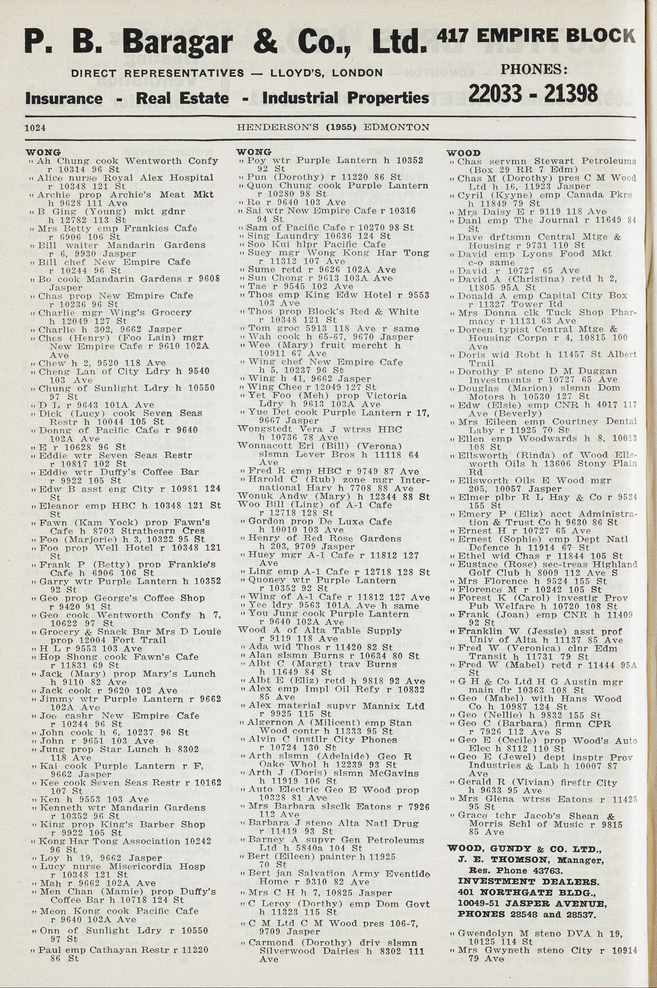 P. B. Baragar & Co., Ltd. 417 EMPIRE BLOCK
DIRECT REPRESENTATIVES — LLOYD'S, LONDON
PHONES:
Insurance - Real Estate - Industrial Properties
22033 - 21398
1024
HENDERSON'S (1955) EDMONTON
WONG
" Ah Chung cook Wentworth Confy
r 10314 96 St
" Alice nurse Royal Alex Hospital
r 10348 121 St
" Archie prop Archie's Meat Mkt
h 9628 111 Ave
" B Ging (Young) mkt gdnr
h 12782 113 St
" Mrs Betty emp Frankies Cafe
r 6906 106 St
" Bill waiter Mandarin Gardens
r 6, 9930 Jasper
" Bill chef New Empire Cafe
r 10244 96 St
" Bo cook Mandarin Gardens r 9608
Jasper
" Chas prop New Empire Cafe
r 10236 96 St
" Charlie mgr Wing's Grocery
h 12049 127 St
" Charlie h 302, 9662 Jasper
" Ches (Henry) (Foo Lain) mgr
New Empire Cafe r 9610 102A
Ave
" Chew h 2, 9520 118 Ave
" Cheng Lan of City Ldry h 9540
103 Ave
" Chung of Sunlight Ldry h 10550
97 St
" D L r 9643 101A Ave
" Dick (Lucy) cook Seven Seas
Restr h 10044 105 St
" Donng of Pacific Cafe r 9640
102A Ave
" E r 10628 96 St
" Eddie wtr Seven Seas Restr
r 10817 102 St
" Eddie wtr Duffy's Coffee Bar
r 9922 105 St
" Edw B asst eng City r 10981 124
St
" Eleanor emp HBC h 10348 121 St
St
" Fawn (Kam Yock) prop Fawn's
Cafe h 8703 Strathearn Cres
" Foo (Marjorie) h 3, 10322 95 St
" Foo prop Well Hotel r 10348 121
St
" Frank P (Betty) prop Frankie's
Cafe h 6906 106 St
" Garry wtr Purple Lantern h 10352
92 St
" Geo prop George's Coffee Shop
r 9420 91 St
" Geo cook Wentworth Confy h 7,
10622 97 St
" Grocery & Snack Bar Mrs D Louie
prop 12004 Fort Trail
" H L r 9553 103 Ave
" Hop Shong cook Fawn's Cafe
r 11831 69 St
" Jack (Mary) prop Mary's Lunch
h 9110 82 Ave
" Jack cook r 9620 102 Ave
" Jimmy wtr Purple Lantern r 9662
102A Ave
" Joe cashr New Empire Cafe
r 10244 96 St
" John cook h 6, 10237 96 St
" John r 9651 103 Ave
" Jung prop Star Lunch h 8302
118 Ave
" Kai cook Purple Lantern r F,
9662 Jasper
" Kee cook Seven Seas Restr r 10162
107 St
" Ken h 9553 103 Ave
" Kenneth wtr Mandarin Gardens
r 10352 96 St
" King prop King's Barber Shop
r 9922 105 St
" Kong Har Tong Association 10242
96 St
" Loy h 19, 9662 Jasper
" Lucy nurse Misericordia Hosp
r 10348 121 St
" Mah r 9662 102A Ave
" Men Chan (Mamie) prop Duffy's
Coffee Bar h 10718 124 St
" Meon Kong cook Pacific Cafe
r 9640 102A Ave
" Onn of Sunlight Ldry r 10550
97 St
" Paul emp Cathayan Restr r 11220
86 St
WONG
" Poy wtr Purple Lantern h 10352
92 St
" Pun (Dorothy) r 11220 86 St
" Quon Chung cook Purple Lantern
r 10280 98 St
" Ro r 9640 103 Ave
" Sai wtr New Empire Cafe r 10316
94 St
" Sam of Pacific Cafe r 10270 98 St
" Sing Laundry 10636 124 St
" Soo Kui hlpr Pacific Cafe
" Suey mgr Wong Kong Har Tong
r 11312 107 Ave
" Sume retd r 9626 102A Ave
" Sun Chong r 9613 103A Ave
" Tae r 9545 102 Ave
" Thos emp King Edw Hotel r 9553
103 Ave
" Thos prop Block's Red & White
r 10348 121 St
" Tom groc 5913 118 Ave r same
" Wah cook h 65-67, 9670 Jasper
" Wee (Mary) fruit mercht h
10911 67 Ave
" Wing chef New Empire Cafe
h 5, 10237 96 St
" Wing h 41, 9662 Jasper
" Wing Chee r 12049 127 St
" Yet Foo (Meh) prop Victoria
Ldry h 9613 103A Ave
" Yue Det cook Purple Lantern r 17,
9667 Jasper
Wongstedt Vera J wtrss HBC
h 10736 78 Ave
Wonnacott Eri (Bill) (Verona)
slsmn Lever Bros h 11118 64
Ave
" Fred R emp HBC r 9749 87 Ave
" Harold C (Rub) zone mgr Inter-
national Harv h 7708 88 Ave
Wonuk Andw (Mary) h 12344 88 St
Woo Bill (Ling) of A-1 Cafe
r 12718 128 St
" Gordon prop De Luxe Cafe
h 10010 103 Ave
" Henry of Red Rose Gardens
h 203, 9709 Jasper
" Huey mgr A-1 Cafe r 11812 127
Ave
" Ling emp A-1 Cafe r 12718 128 St
" Quoney wtr Purple Lantern
r 10352 92 St
" Wing of A-1 Cafe r 11812 127 Ave
" Yee ldry 9563 101A Ave h same
" You Jung cook Purple Lantern
r 9640 102A Ave
Wood A of Alta Table Supply
r 9119 118 Ave
" Ada wid Thos r 11420 82 St
" Alan slsmn Burns r 10634 80 St
" Albt C (Margt) trav Burns
h 11649 84 St
" Albt E (Eliz) retd h 9818 92 Ave
" Alex emp Impl Oil Refy r 10832
85 Ave
" Alex material supvr Mannix Ltd
r 9925 115 St
" Algernon A (Millicent) emp Stan
Wood contr h 11333 95 St
" Alvin C instllr City Phones
r 10724 130 St
" Arth slsmn (Adelaide) Geo R
Oake Whol h 12239 93 St
" Arth J (Doris) slsmn McGavins
h 11919 106 St
" Auto Electric Geo E Wood prop
10328 81 Ave
" Mrs Barbara slsclk Eatons r 7926
112 Ave
" Barbara J steno Alta Natl Drug
r 11419 93 St
" Barney A supvr Gen Petroleums
Ltd h 5840a 104 St
" Bert (Eileen) painter h 11925
70 St
" Bert jan Salvation Army Eventide
Home r 9310 82 Ave
" Mrs C H h 7, 10825 Jasper
" C Leroy (Dorthy) emp Dom Govt
h 11323 115 St
" C M Ltd C M Wood pres 106-7,
9709 Jasper
" Carmond (Dorothy) driv slsmn
Silverwood Dairies h 8302 111
Ave
WOOD
" Chas servmn Stewart Petroleums
(Box 29 RR 7 Edm)
" Chas M (Dorothy) pres C M Wood
Ltd h 16, 11923 Jasper
" Cyril (Kyyne) emp Canada Pkrs
h 11849 79 St
" Mrs Daisy E r 9119 118 Ave
" Danl emp The Journal r 11649 84
St
" Dave drftsmn Central Mtge &
Housing r 9731 110 St
" David emp Lyons Food Mkt
c-o same
" David r 10727 65 Ave
" David A (Christina) retd h 2,
11805 95A St
" Donald A emp Capital City Box
r 11327 Tower Rd
" Mrs Donna clk Tuck Shop Phar-
macy r 11131 63 Ave
" Doreen typist Central Mtge &
Housing Corpn r 4, 10815 100
Ave
" Doris wid Robt h 11457 St Albert
Trail
" Dorothy F steno D M Duggan
Investments r 10727 65 Ave
" Douglas (Marion) slsmn Dom
Motors h 10530 127 St
" Edw (Elsie) emp CNR h 4017 117
Ave (Beverly)
" Mrs Eileen emp Courtney Dental
Laby r 11925 70 St
" Ellen emp Woodwards h 8, 10013
108 St
" Ellsworth (Rinda) of Wood Ells-
worth Oils h 13606 Stony Plain
Rd
" Ellsworth Oils E Wood mgr
205, 10057 Jasper
" Elmer plbr R L Hay & Co r 9524
155 St
" Emery P (Eliz) acct Administra-
tion & Trust Co h 9630 86 St
" Ernest H r 10727 65 Ave
" Ernest (Sophie) emp Dept Natl
Defence h 11914 67 St
" Ethel wid Chas r 11844 105 St
" Eustace (Rose) sec-treas Highland
Golf Club h 8009 112 Ave S
" Mrs Florence h 9524 155 St
" Florence M r 10242 105 St
" Forest K (Carol) investig Prov
Pub Welfare h 10720 108 St
" Frank (Joan) emp CNR h 11409
92 St
" Franklin W (Jessie) asst prof
Univ of Alta h 11137 85 Ave
" Fred W (Veronica) clnr Edm
Transit h 11731 79 St
" Fred W (Mabel) retd r 11444 95A
St
" G H & Co Ltd H G Austin mgr
main flr 10363 108 St
" Geo (Mabel) with Hans Wood
Co h 10987 124 St
" Geo (Nellie) h 9832 155 St
" Geo C (Barbara) firmn CPR
r 7926 112 Ave S
" Geo E (Cecile) prop Wood's Auto
Elec h 8112 110 St
" Geo E (Jewel) dept insptr Prov
Industries & Lab h 10007 87
Ave
" Gerald R (Vivian) fireftr City
h 9633 95 Ave
" Mrs Glena wtrss Eatons r 11425
95 St
" Grace tchr Jacob's Shean &
Morris Schl of Music r 9815
85 Ave
WOOD, GUNDY & CO. LTD.,
J. E. THOMSON, Manager,
Res. Phone 43763.
INVESTMENT DEALERS.
401 NORTHGATE BLDG.,
10049-51 JASPER AVENUE,
PHONES 28548 and 28537.
" Gwendolyn M steno DVA h 19,
10125 114 St
" Mrs Gwyneth steno City r 10914
79 Ave